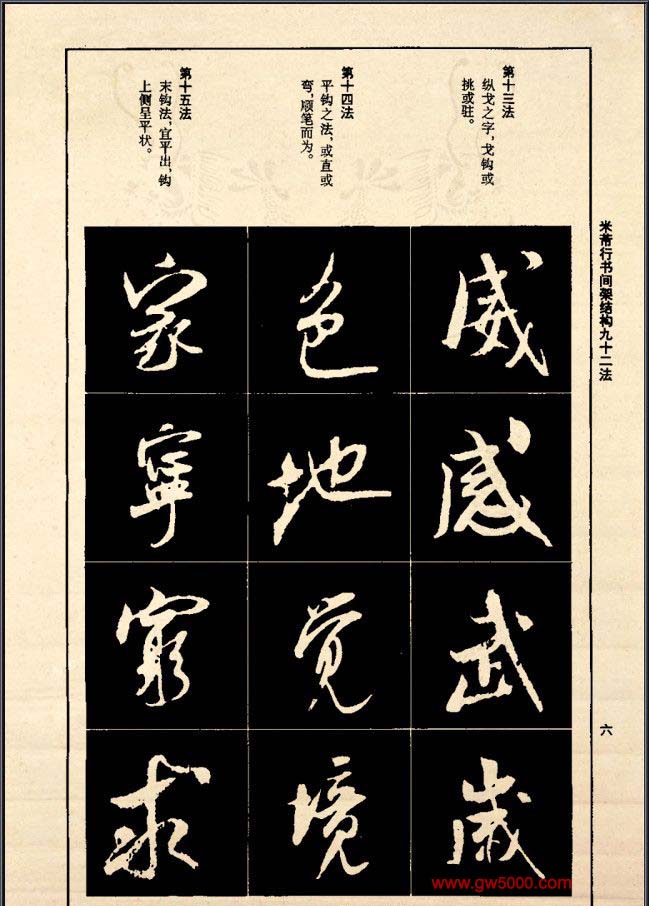 米芾行书间架结构九十二法
第十三法
纵戈之字，戈钩或
挑或驻。
威
感
武
岁
第十四法
平钩之法，或直或
弯，顺笔而为。
色
地
觉
境
第十五法
末钩法，宜平出，钩
上侧呈平状。
家
寧
窮
求
六
www.gw5000.com